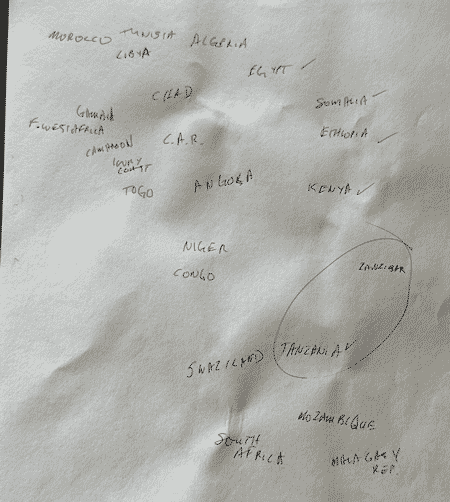 MOROCCO TUNISIA ALGERIA
LIBYA
EGYPT ✓
CHAD
SOMALIA ✓
F. WEST AFRICA
C.A.R.
ETHIOPIA ✓
IVORY
COAST
TOGO
ANGOLA
KENYA ✓
NIGER
CONGO
ZANZIBAR
SWAZILAND
TANZANIA ✓
MOZAMBIQUE
SOUTH
AFRICA
MALAGASY
REP.